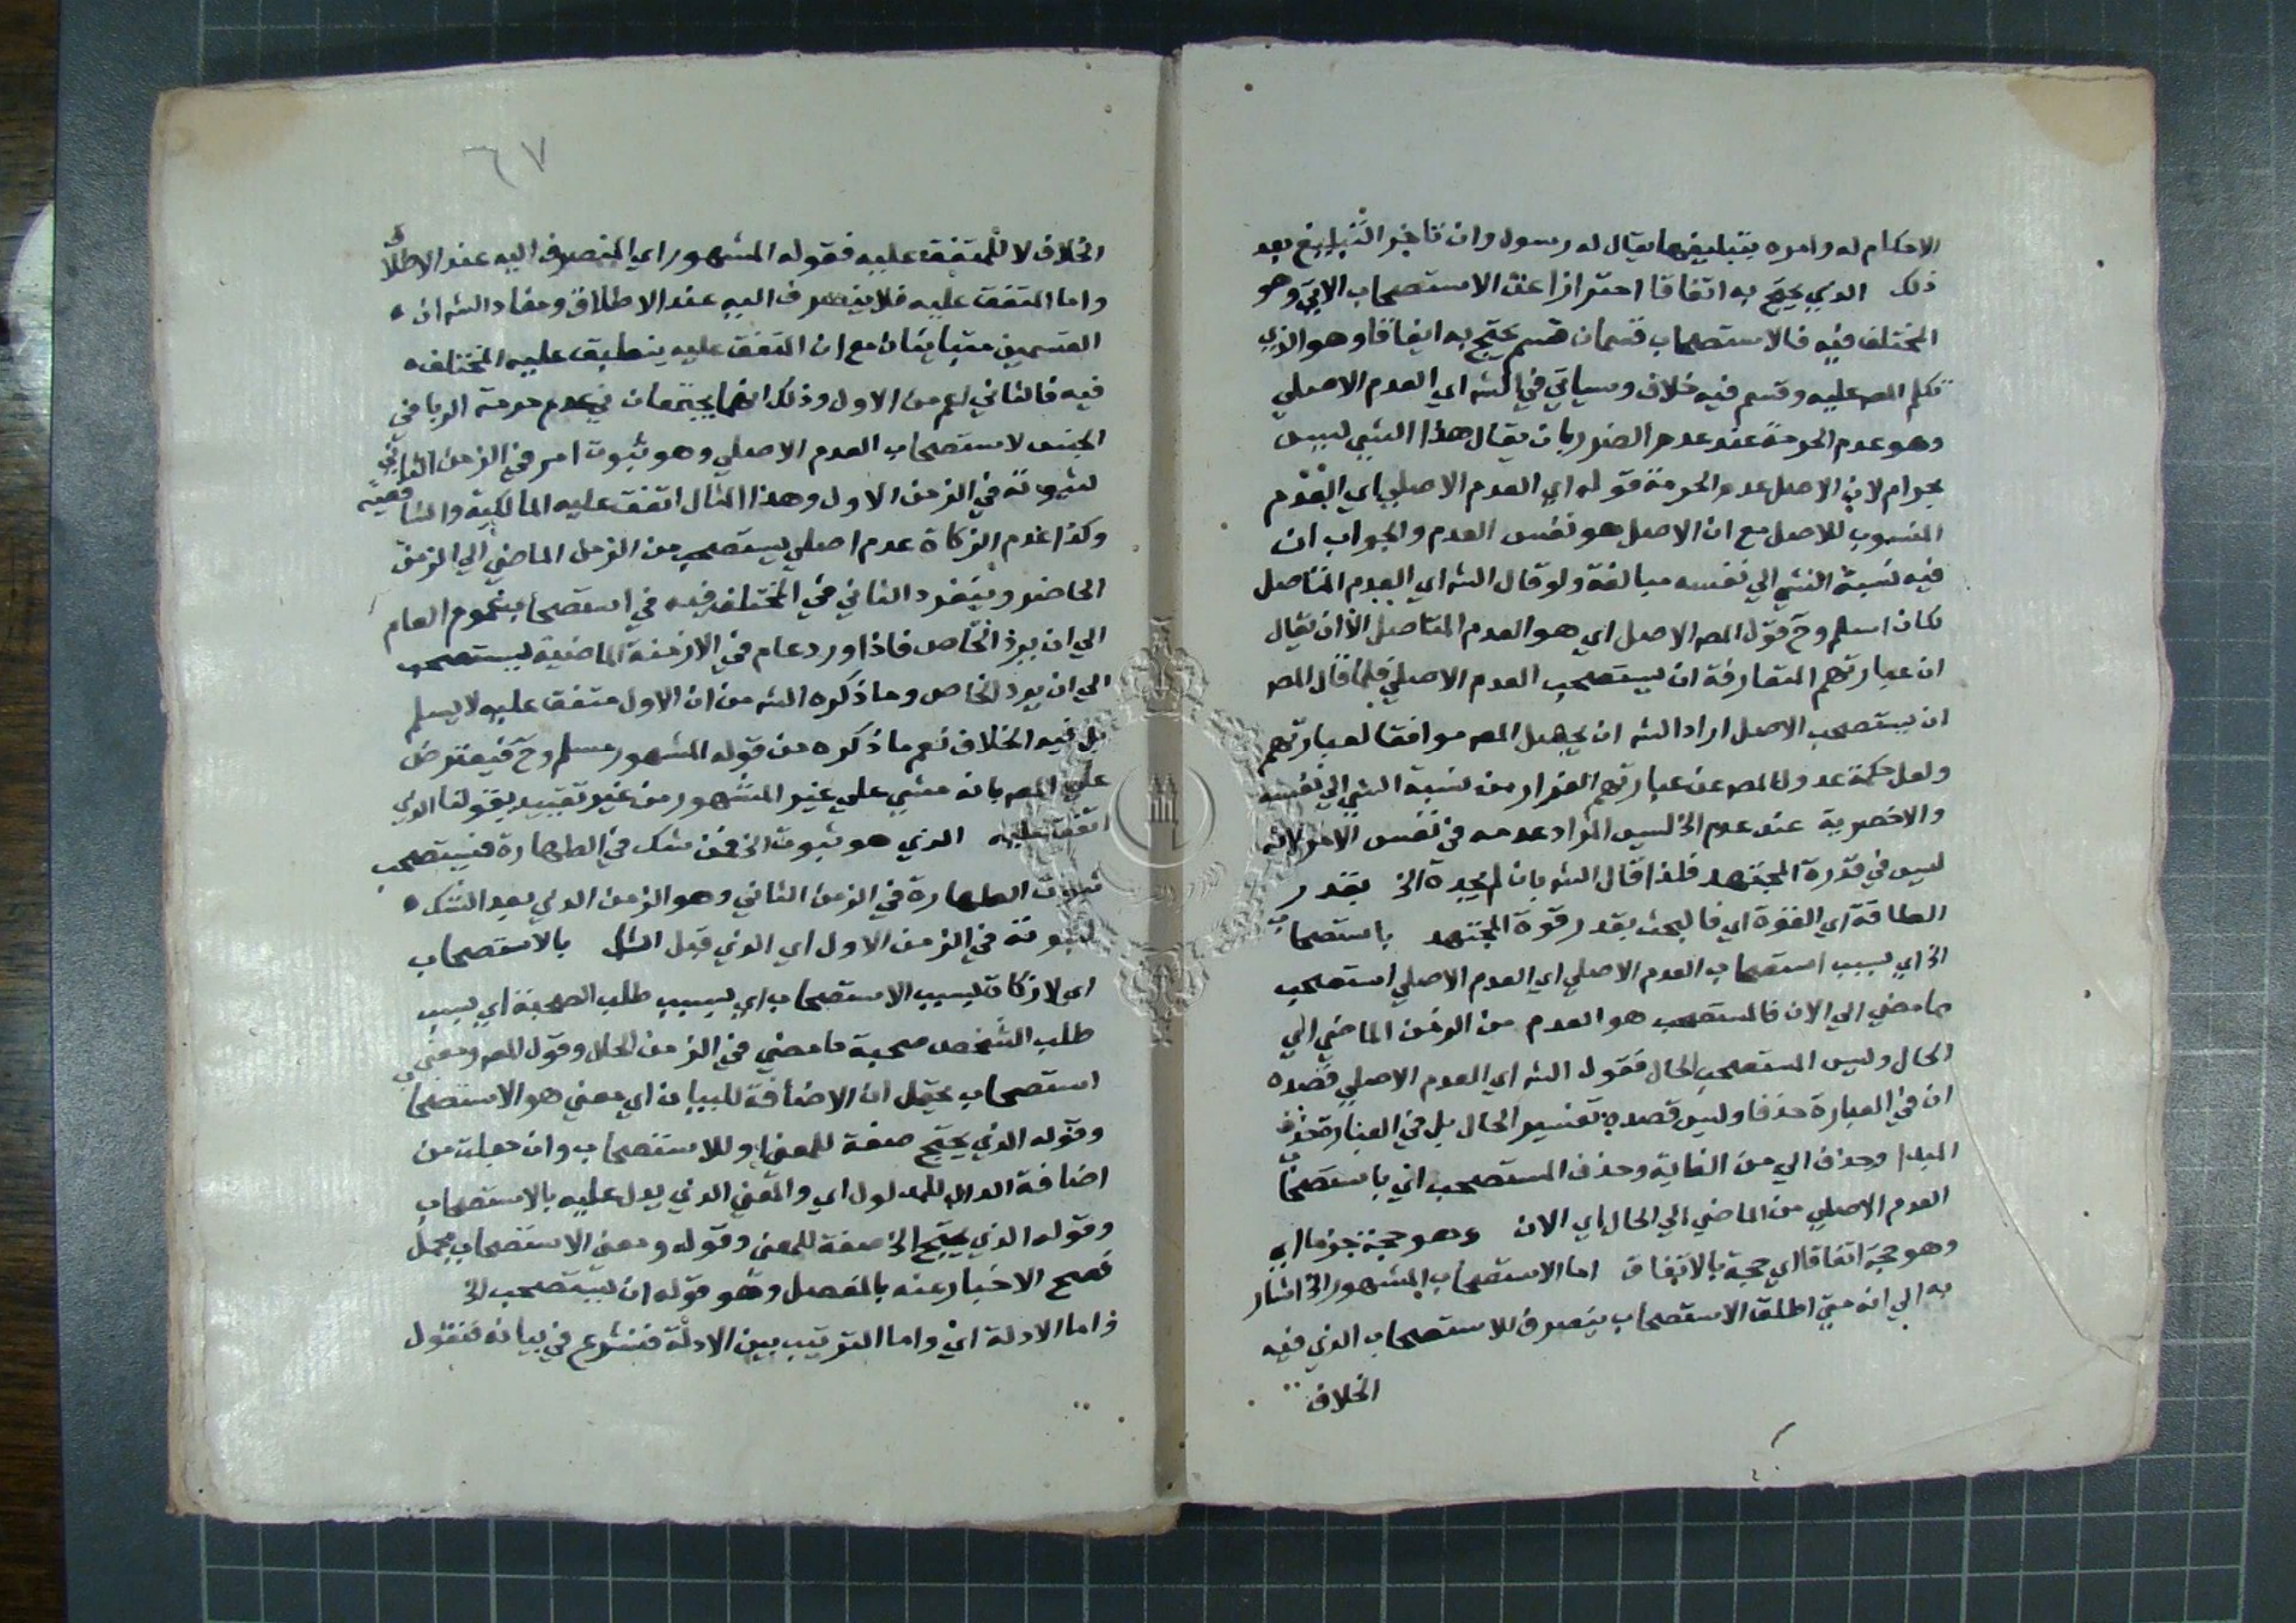 الاحكام له وامره بتبليغها يقال له رسول وان تاخر التبليغ بعد
ذلك الذي يحتج به اتفاقا احترازا عن الاستصحاب الاتي وهو
المختلف فيه فالاستصحاب قسمان قسم يحتج به اتفاقا وهو الذي
تكلم المص عليه وقسم فيه خلاف وسياتي في الشه اي العدم الاصلي
وهو عدم الحرمة عند عدم الضرر بان يقال هذا الشي ليس
بحرام لان الاصل عدم الحرمة قوله اي العدم الاصلي اي العدم
المنسوب للاصل مع ان الاصل هو نفس العدم والجواب ان
فيه نسبة الشي الي نفسه مبالغة ولو قال الشه اي العدم المتاصل
لكان اسلم وح قول المص الاصل اي هو العدم المتاصل الا ان يقال
ان عبارتهم المتعارفة ان يستصحب العدم الاصلي فلما قال المص
ان يستصحب الاصل اراد الشه ان يجعل المص موافقا لعبارتهم
ولعل حكمة عدول المص عن عبارتهم الفرار من نسبة الشي الي نفسه
والاخصرية عند عدم الخ ليس المراد عدمه في نفس الامر لانه
ليس في قدرة المجتهد فلذا قال الشه بان لم يجده الخ بقدر
الطاقة اي القوة اي فالبحث بقدر قوة المجتهد باستصحاب
الخ اي بسبب استصحاب العدم الاصلي اي العدم الاصلي استصحب
مما مضي الي الان فالمستصحب هو العدم من الزمن الماضي الي
الحال وليس المستصحب الحال فقول الشه اي العدم الاصلي قصده
ان في العبارة حذفا وليس قصده تفسير الحال بل في العبارة حذف
المبدا وحذف الي من الغاية وحذف المستصحب اي باستصحاب
العدم الاصلي من الماضي الي الحال اي الان وهو حجة جزما اي
وهو حجة اتفاقا اي حجة بالاتفاق اما الاستصحاب المشهور الخ اشار
به الي انه متي اطلق الاستصحاب ينصرف للاستصحاب الذي فيه
الخلاف
٦٧
الخلاف لا للمتفق عليه فقوله المشهور اي المنصرف اليه عند الاطلاق
واما المتفق عليه فلا ينصرف اليه عند الاطلاق ومفاد الشه ان
القسمين متباينان مع ان المتفق عليه ينطبق عليه المختلف
فيه فالثاني اعم من الاول وذلك انهما يجتمعان في عدم حرمة الربا في
الجنس لاستصحاب العدم الاصلي وهو ثبوت امر في الزمن الثاني
لثبوته في الزمن الاول وهذا المثال اتفق عليه المالكية والشافعية
وكذا عدم الزكاة عدم اصلي يستصحب من الزمن الماضي الي الزمن
الحاضر وينفرد الثاني في المختلف فيه في استصحاب عموم العام
الي ان يرد الخاص فاذا ورد عام في الازمنة الماضية يستصحب
الي ان يرد الخاص وما ذكره الشه من ان الاول متفق عليه لا يسلم
بل فيه الخلاف نعم ما ذكره من قوله المشهور مسلم وح فيعترض
علي المص بانه مشي علي غير المشهور من غير تقييد بقولنا الذي
اتفق عليه الذي هو ثبوت الخ فمن شك في الطهارة فيستصحب
ثبوت الطهارة في الزمن الثاني وهو الزمن الذي بعد الشك
لثبوته في الزمن الاول اي الذي قبل الشك بالاستصحاب
اي لا زكاة بسبب الاستصحاب اي بسبب طلب الصحبة اي بسبب
طلب الشخص صحبة ما مضي في الزمن الحال وقول المص ومعني
استصحاب يحتمل ان الاضافة للبيان اي معني هو الاستصحاب
وقوله الذي يحتج صفة للمعني او للاستصحاب وان جعلت من
اضافة الدال للمدلول اي والمعني الذي يدل عليه بالاستصحاب
وقوله الذي يحتج الخ صفة للمعني وقوله ومعني الاستصحاب مجمل
فصح الاخبار عنه بالمفصل وهو قوله ان يستصحب الخ
واما الادلة اي واما الترتيب بين الادلة فنشرع في بيانه فنقول